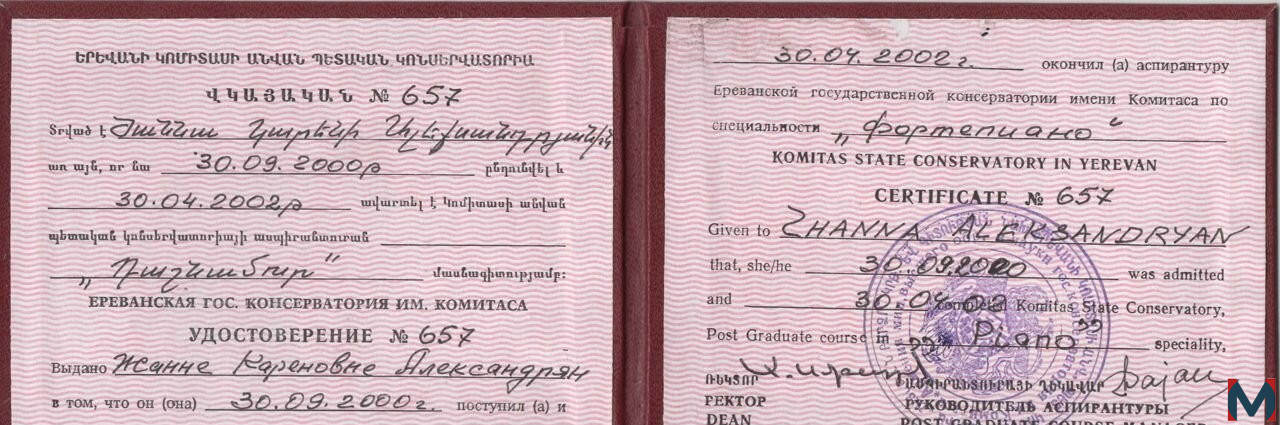 ԵՐԵՎԱՆԻ ԿՈՄԻՏԱՍԻ ԱՆՎԱՆ ՊԵՏԱԿԱՆ ԿՈՆՍԵՐՎԱՏՈՐԻԱ
ՎԿԱՅԱԿԱՆ № 657
Տրված է Ժաննա Կարենի Ալեքսանդրյանին
առ այն, որ նա 30.09.2000թ ընդունվել և
30.04.2002թ ավարտել է Կոմիտասի անվան
պետական կոնսերվատորիայի ասպիրանտուրան
„Դաշնամուր" մասնագիտությամբ:
ЕРЕВАНСКАЯ ГОС. КОНСЕРВАТОРИЯ ИМ. КОМИТАСА
УДОСТОВЕРЕНИЕ № 657
Выдано Жанне Кареновне Александрян
в том, что он (она) 30.09.2000г. поступил (а) и
30.04.2002г. окончил (а) аспирантуру
Ереванской государственной консерватории имени Комитаса по
специальности „Фортепиано"
KOMITAS STATE CONSERVATORY IN YEREVAN
CERTIFICATE № 657
Given to ZHANNA ALEKSANDRYAN
that, she/he 30.09.2000 was admitted
and 30.04.02 completed Komitas State Conservatory,
Post Graduate course in „Piano" speciality,
ՌԵԿՏՈՐ ԱՍՊԻՐԱՆՏՈՒՐԱՅԻ ՂԵԿԱՎԱՐ
РЕКТОР РУКОВОДИТЕЛЬ АСПИРАНТУРЫ
DEAN POST GRADUATE COURSE MANAGER
M